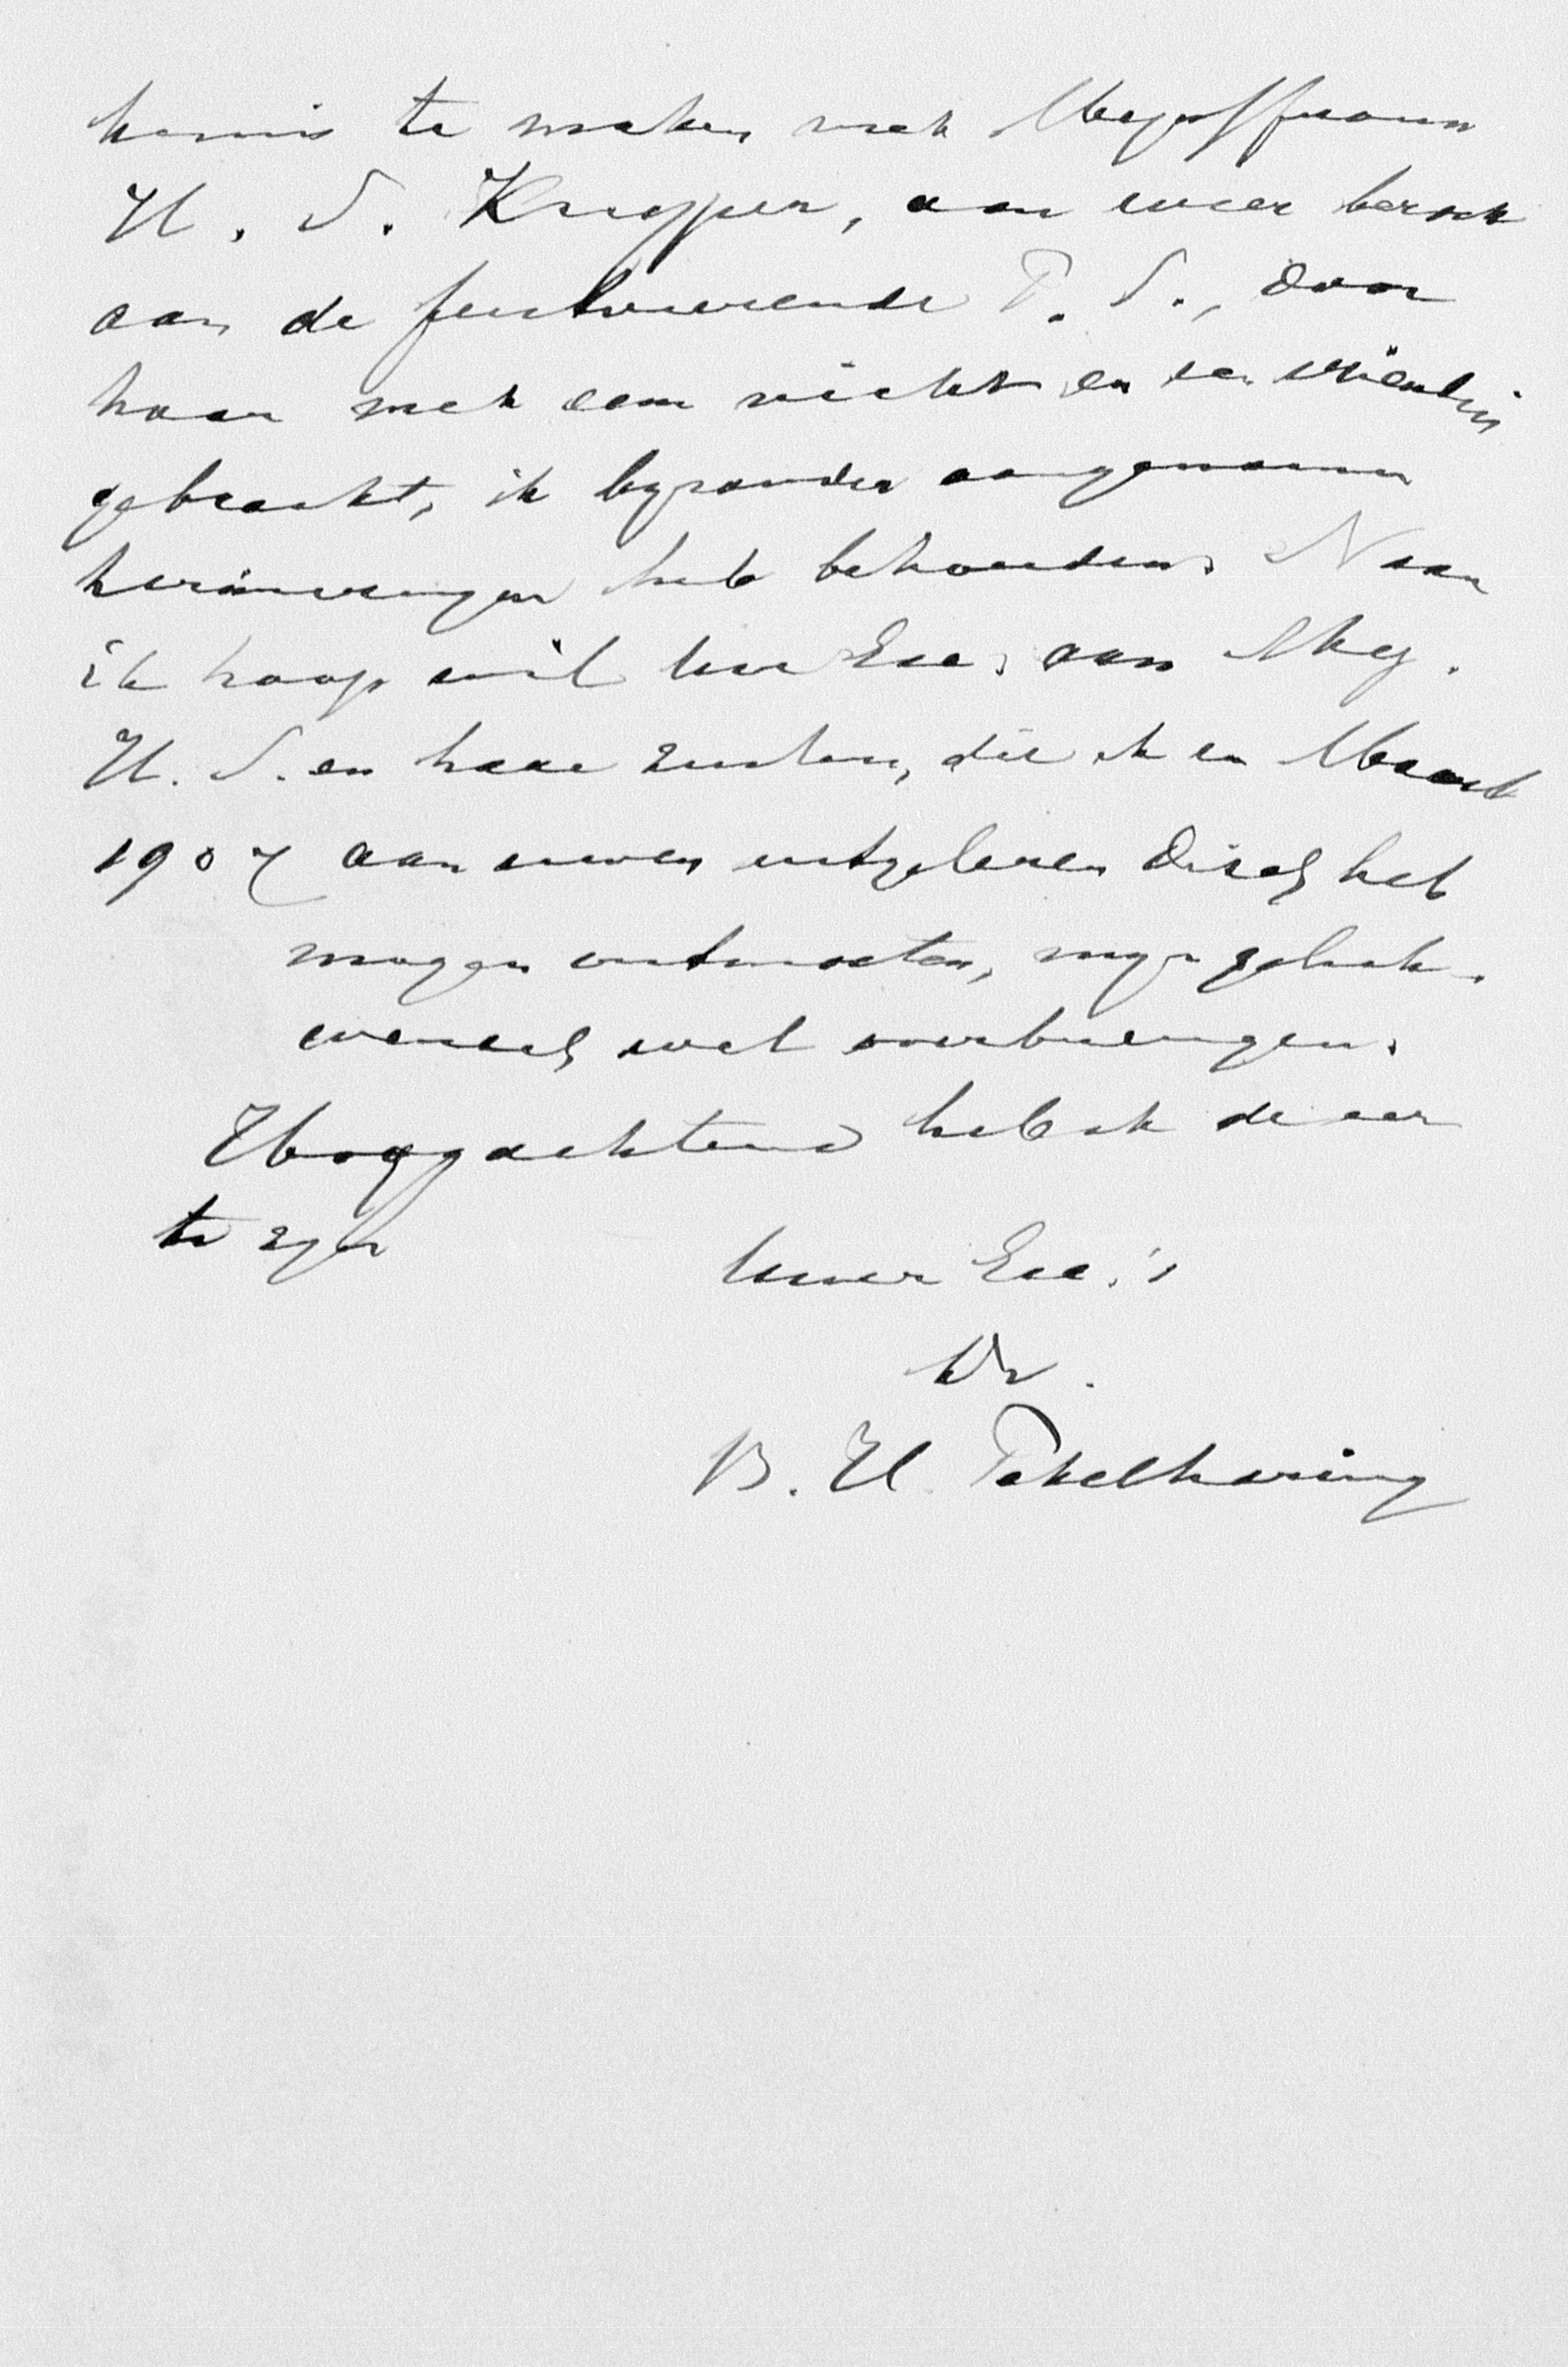 kennis te maken met Mejuffrouw
H. S. Kuyper, aan wier bezoek
aan de feestvierende P. S., door
haar met een nicht en een vriendin
gebracht, ik byzonder aangename
herinneringen heb behouden. Naar
ik hoop wil Uwe Exc. aan Mej.
H. S. en hare zusters, die ik in Maart
1907 aan uwen uitgelezen disch heb
mogen ontmoeten, myn geluk-
wensch wel overbrengen.
Hoogachtend heb ik de eer
te zyn
Uwer Exc.'s
Dr.
B. H. Pekelharing